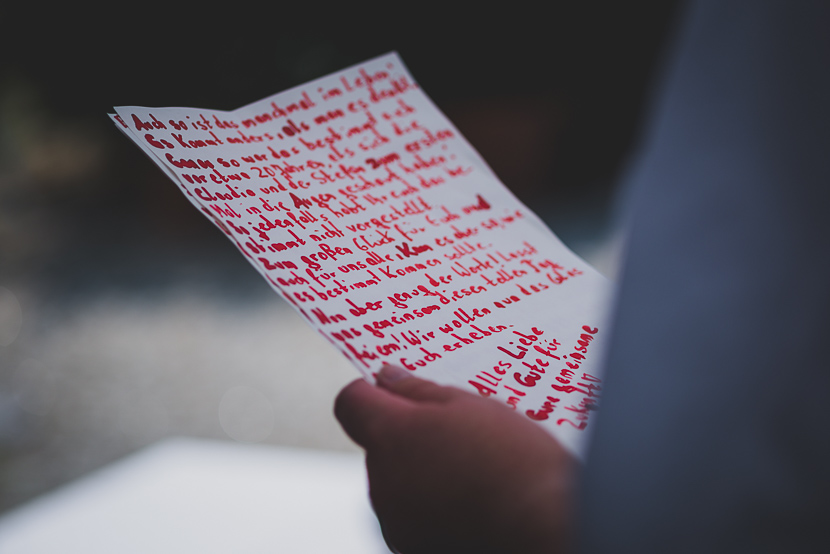 Auch so ist das manchmal im Leben.
Es kommt anders, als man es denkt!
Ganz so war das bestimmt auch
vor etwa 20 Jahren, als sich die
Claudia und der Stefan zum ersten
Mal in die Augen geschaut haben.
jedenfalls habt Ihr euch das be-
stimmt nicht vorgestellt.
Zum großen Glück für Euch und
auch für uns alle, kam es aber so, wie
es bestimmt kommen sollte.
Nun aber genug der Worte! Lasst
uns gemeinsam diesen tollen Tag
feiern! Wir wollen nun das Glas
auf Euch erheben.
Alles Liebe
und Gute für
Eure gemeinsame
Zukunft!